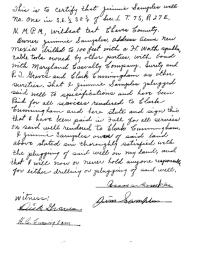 This is to certify that Jimmie Sampley well
No. One in S.E.¼ S.E.¼ of Sec. 1 T. 7 S, R 27 E
N.M.P.M., wildcat test Chaves County.
Owner Jimmie Sampley address Same New
Mexico drilled to 100 feet with a H. Watt spudder
cable tools owned by other parties, with bond
with Maryland Casualty Company. Surety and
R.D. Graves and Clark Cunningham as other
sureties. That I Jimmie Sampley plugged
said well to specifications and have been
Paid for all services rendered to Clark
Cunningham and here state and say this
that I have been paid in full for all services
on said well rendered to Clark Cunningham.
I Jimmie Sampley owner of said land
above stated am thoroughly satisfied with
the plugging of said well on my land, and
that I will now or never hold anyone
for either drilling or plugging of said well.
Jim Sampley
Witness:
Dick Graves
Cunningham